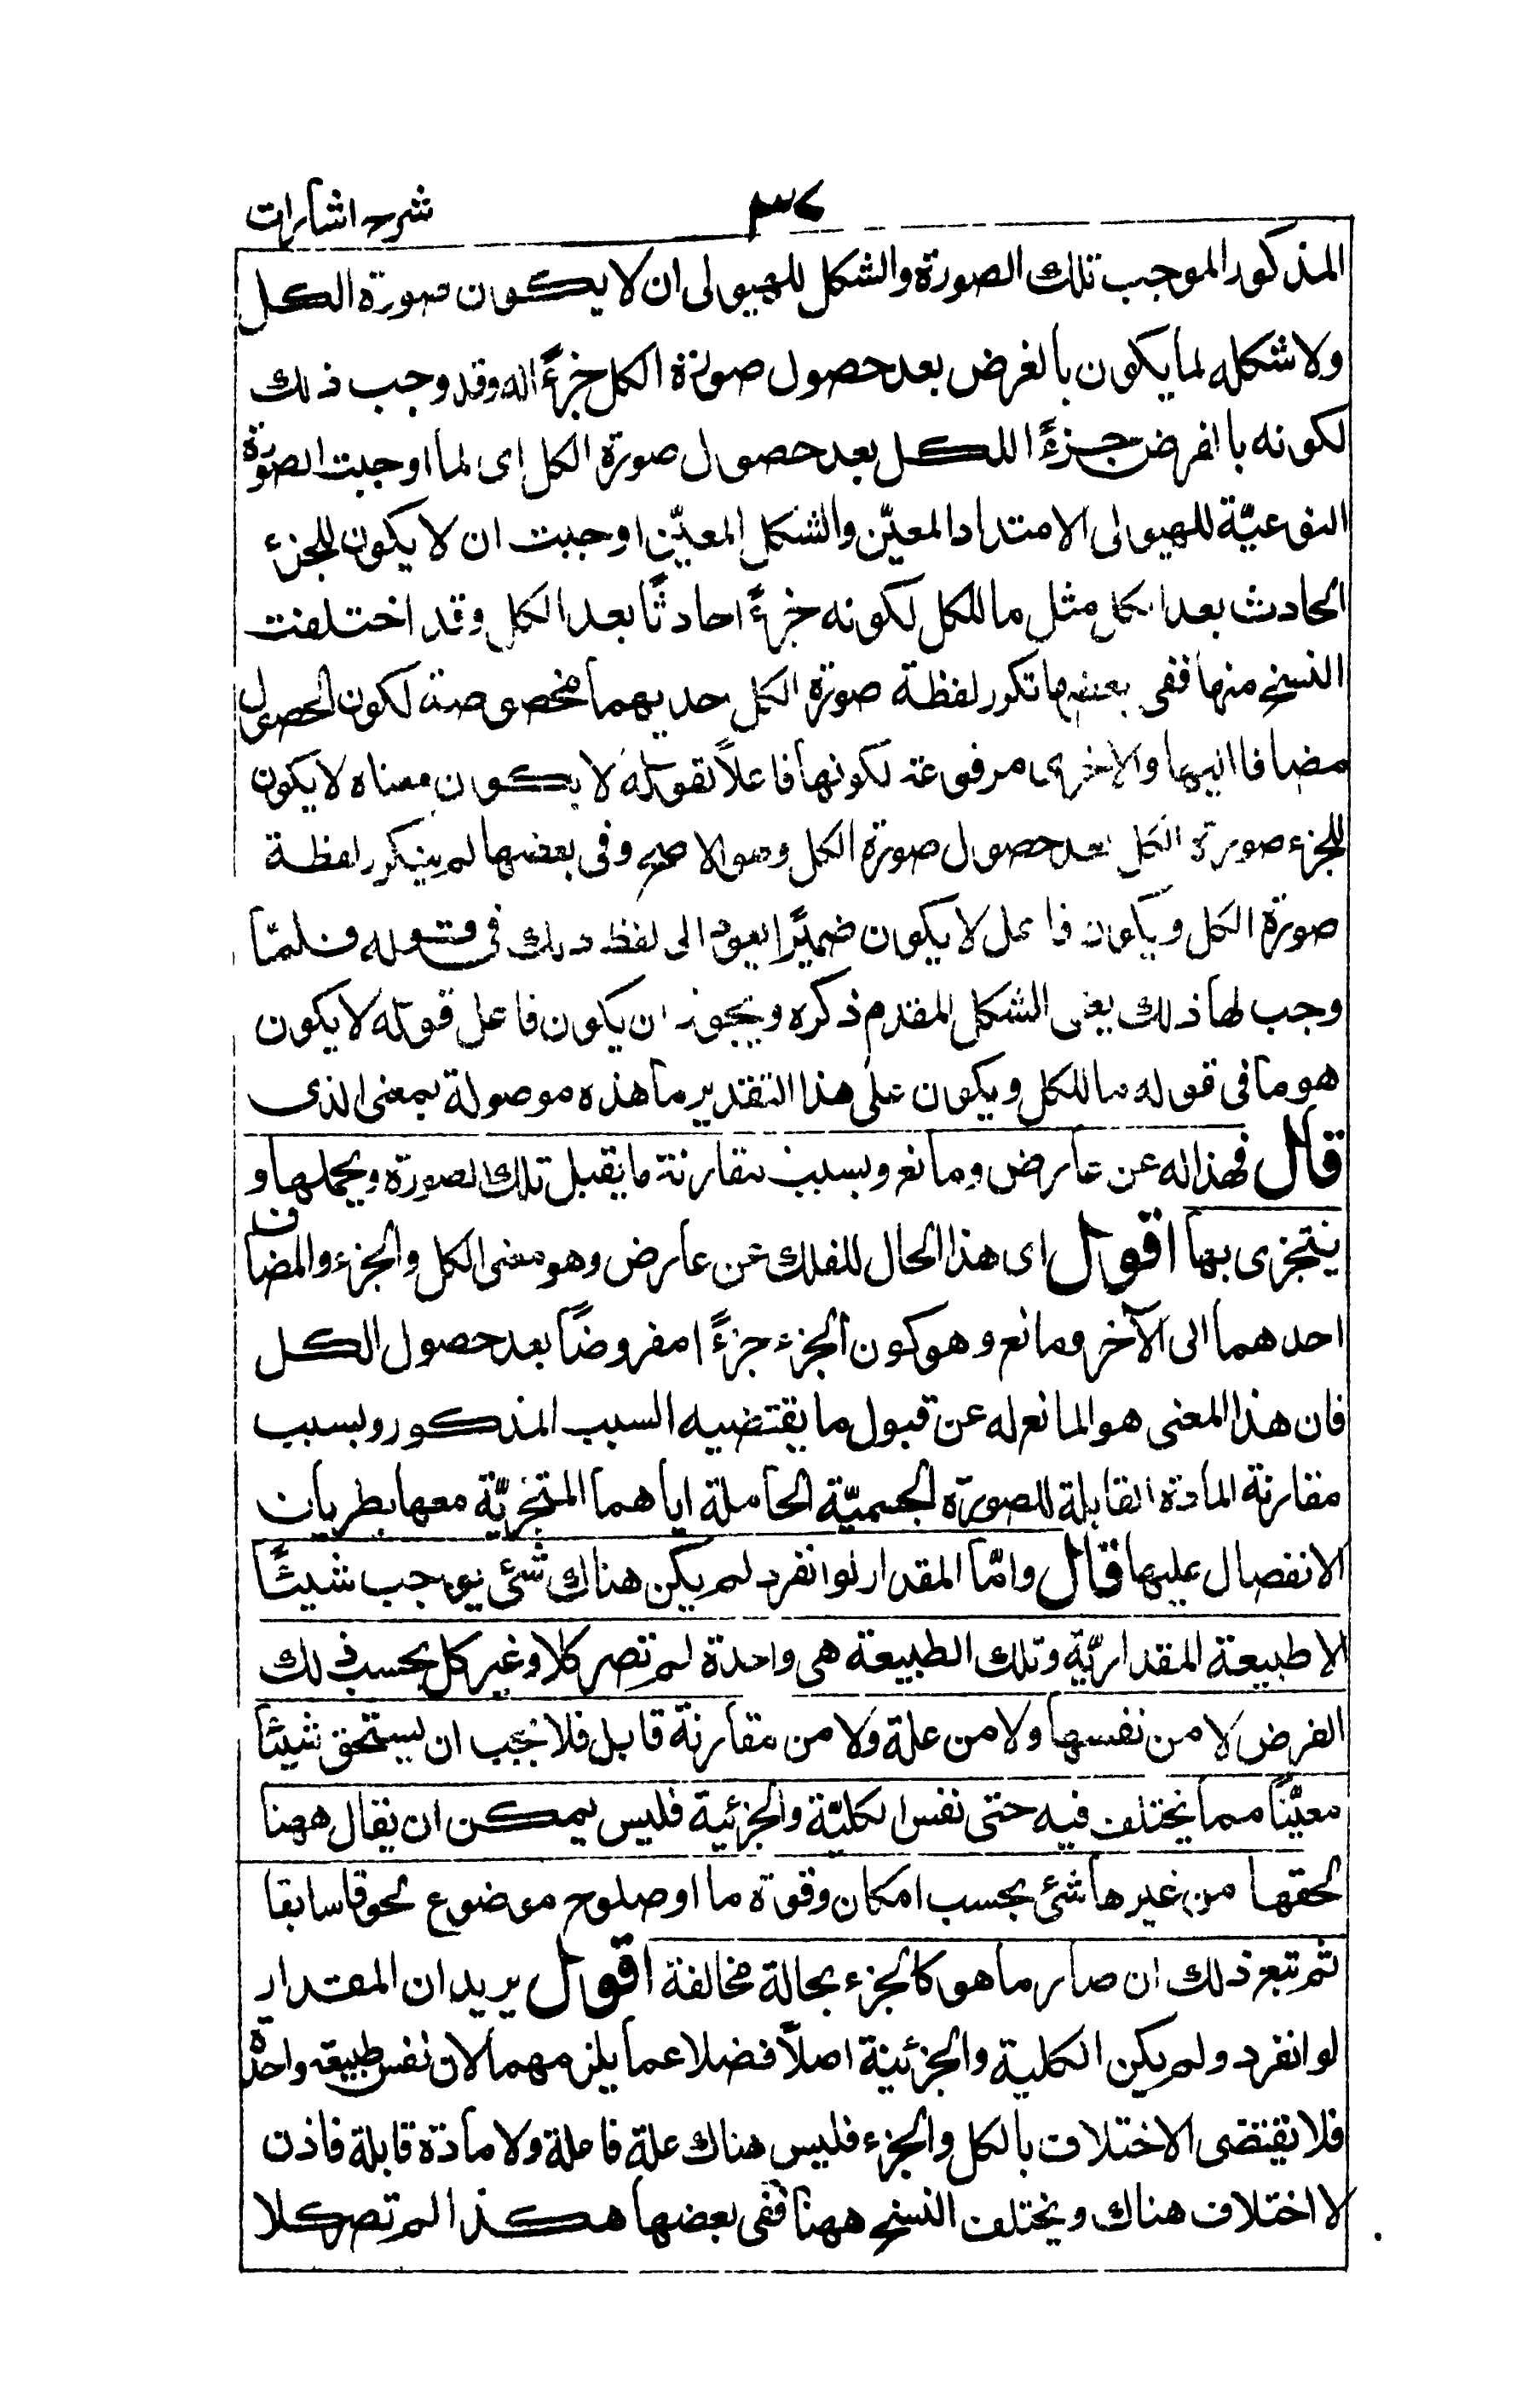 شرح اشارات
٣٧
المذكور الموجب تلك الصورة والشكل للهيولى ان لا يكون صورة الكل
ولا شكله لما يكون بالفرض بعد حصول صورة الكل جزءًا له وقد وجب ذلك
لكونه بالفرض جزءًا للكل بعد حصول صورة الكل اى لما اوجبت الصورة
النوعيّة للهيولى الامتداد المعيّن والشكل المعيّن اوجبت ان لا يكون للجزء
الحادث بعد الكل مثل ما للكل لكونه جزءًا حادثًا بعد الكل وقد اختلفت
النسخ منها ففى بعضها تكرر لفظة صورة الكل احديهما مخصوصة لكون الحصول
مضافا اليها والاخرى مرفوعة لكونها فاعلاً لقوله لا يكون معناه لا يكون
للجزء صورة الكل بعد حصول صورة الكل وهو الاصح وفى بعضها لم يتكرر لفظة
صورة الكل ويكون فاعل لا يكون ضميرًا يعود الى لفظ ذلك فى قوله فلمّا
وجب لها ذلك يعنى الشكل المقدم ذكره ويجوز ان يكون فاعل قوله لا يكون
هو ما فى قوله ما للكل ويكون على هذا التقدير ما هذه موصولة بمعنى الذى
قال فهذا له عن عارض ومانع وبسبب مقارنة ما يقبل تلك الصورة ويحملها و
يتجزى بها اقول اى هذا الحال للفلك عن عارض وهو معنى الكل والجزء والمضاف
احدهما الى الآخر ومانع وهو كون الجزء جزءًا مفروضًا بعد حصول الكل
فان هذا المعنى هو المانع له عن قبول ما يقتضيه السبب المذكور وبسبب
مقارنة المادة القابلة للصورة الجسميّة الحاملة اياهما المتجزيّة معها بطريان
الانفصال عليها قال وامّا المقدار لو انفرد لم يكن هناك شئ يوجب شيئًا
الا طبيعة المقداريّة وتلك الطبيعة هى واحدة لم تصر كلا وغير كل بحسب ذلك
الفرض لا من نفسها ولا من علة ولا من مقارنة قابل فلا يجب ان يستحق شيئا
معيّنًا مما يختلف فيه حتى نفس الكليّة والجزئية فليس يمكن ان يقال ههنا
لحقها من غيرها شئ بحسب امكان وقوة ما او صلوح موضوع لحوقا سابقا
ثم تبع ذلك ان صار ما هو كالجزء بحالة مخالفة اقول يريد ان المقدار
لو انفرد ولم يكن الكلية والجزئية اصلاً فضلا عما يلزمهما لان نفس طبيعة واحدة
فلا تقتضى الاختلاف بالكل والجزء فليس هناك علة فاعلة ولا مادة قابلة فاذن
لا اختلاف هناك ويختلف النسخ ههنا ففى بعضها هكذا لم تصر كلا